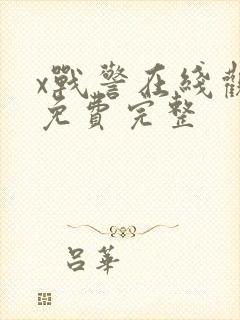 x戰警在綫觀
免費完整
呂華